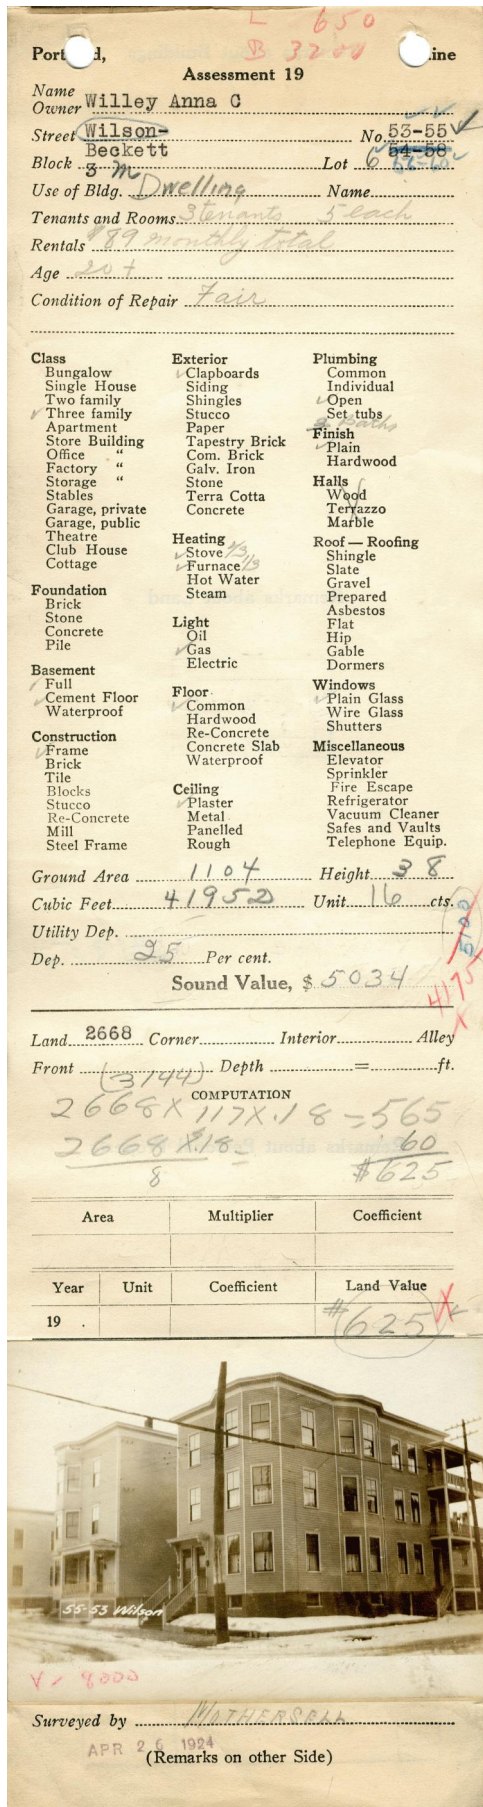 L 650
B 3200
Portland, Maine
Assessment 19
Name
Owner Willey Anna C
Street Wilson- No. 53-55
Beckett 54-58
Block 3 M Lot 6 56-60
Use of Bldg. Dwelling Name
Tenants and Rooms 3 tenants 5 each
Rentals $89 monthly total
Age 20+
Condition of Repair Fair
Class
Bungalow
Single House
Two family
Three family
Apartment
Store Building
Office "
Factory "
Storage "
Stables
Garage, private
Garage, public
Theatre
Club House
Cottage
Foundation
Brick
Stone
Concrete
Pile
Basement
Full
Cement Floor
Waterproof
Construction
Frame
Brick
Tile
Blocks
Stucco
Re-Concrete
Mill
Steel Frame
Exterior
Clapboards
Siding
Shingles
Stucco
Paper
Tapestry Brick
Com. Brick
Galv. Iron
Stone
Terra Cotta
Concrete
Heating
Stove 2/3
Furnace 1/3
Hot Water
Steam
Light
Oil
Gas
Electric
Floor
Common
Hardwood
Re-Concrete
Concrete Slab
Waterproof
Ceiling
Plaster
Metal
Panelled
Rough
Plumbing
Common
Individual
Open
Set tubs
3 Baths
Finish
Plain
Hardwood
Halls
Wood
Terrazzo
Marble
Roof — Roofing
Shingle
Slate
Gravel
Prepared
Asbestos
Flat
Hip
Gable
Dormers
Windows
Plain Glass
Wire Glass
Shutters
Miscellaneous
Elevator
Sprinkler
Fire Escape
Refrigerator
Vacuum Cleaner
Safes and Vaults
Telephone Equip.
Ground Area 1104 Height 38
Cubic Feet 41952 Unit 16 cts.
Utility Dep.
5100
Dep. 25 Per cent.
Sound Value, $ 5034
4175
Land 2668 Corner Interior Alley
Front (3144) Depth = ft.
COMPUTATION
2668 X 117 X .18 = 565
2668 X .18 = 60
8 $625
Area Multiplier Coefficient
Year Unit Coefficient Land Value
19 . #625
55-53 Wilson
V - 8000
Surveyed by MOTHERSELL
APR 26 1924
(Remarks on other Side)